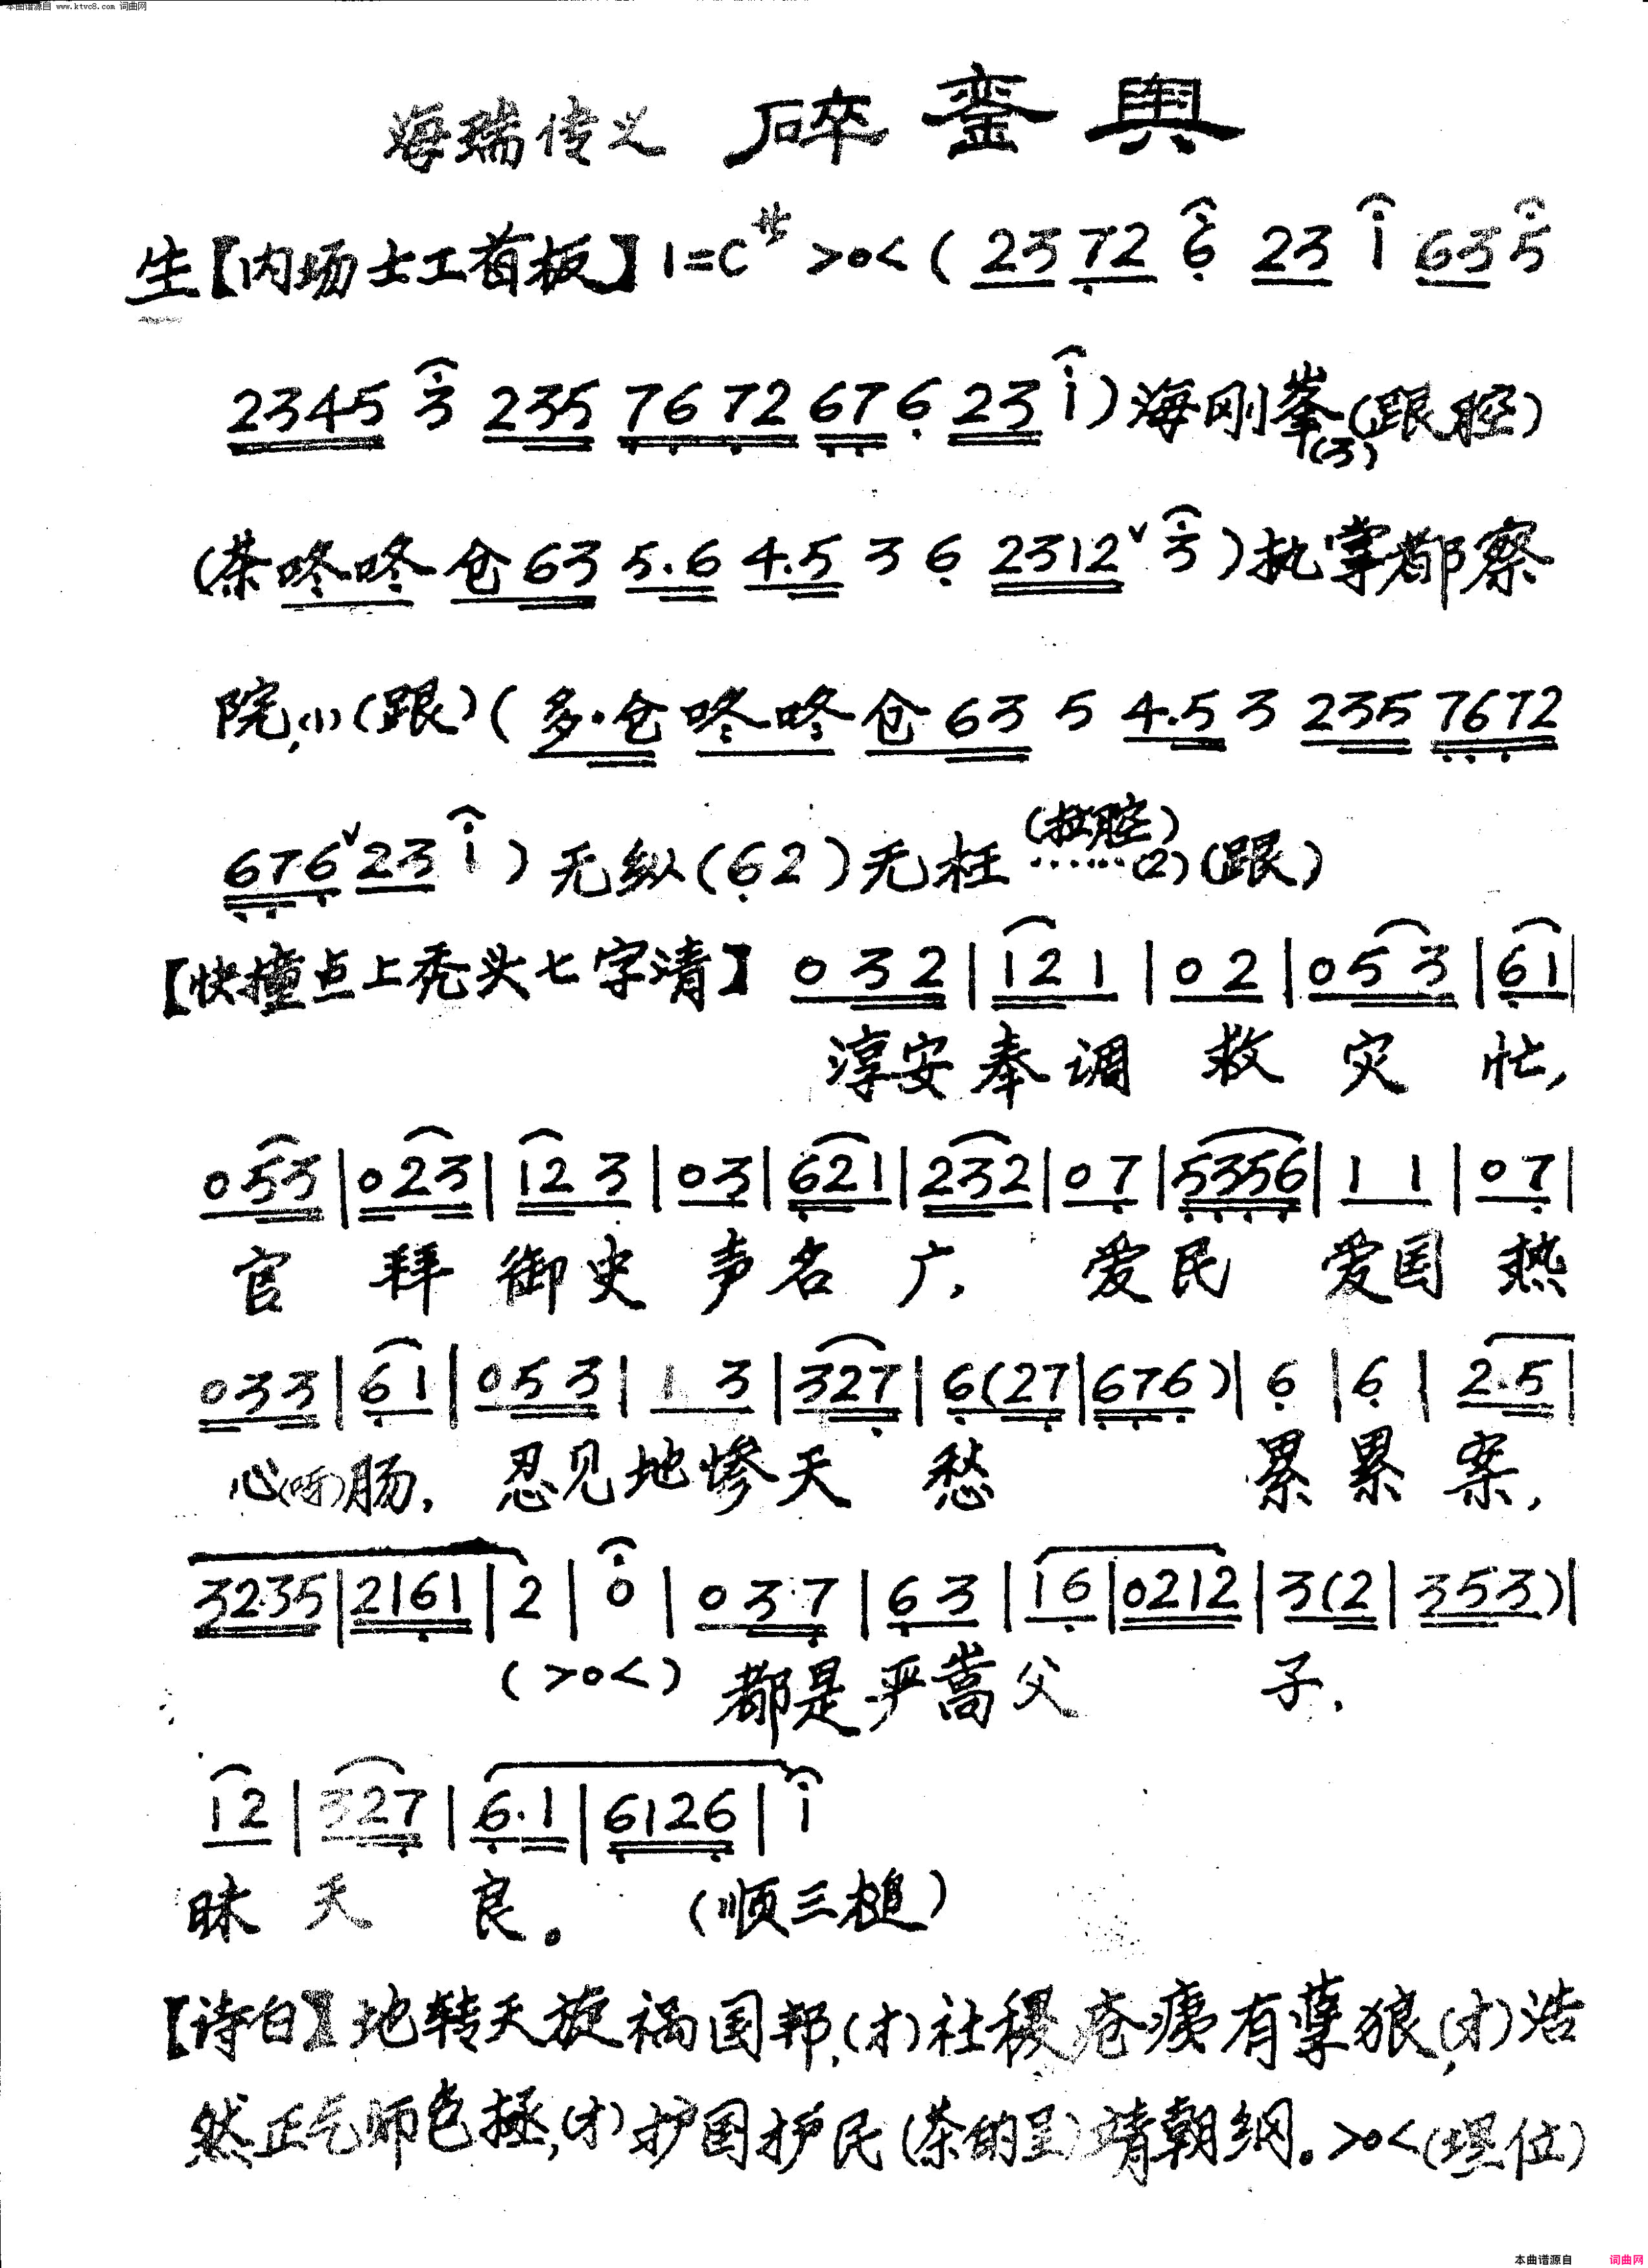 本曲谱源自 www.ktvc8.com 词曲网
海瑞传之 碎銮舆
生【内场士工首板】1=C 廿 >0< ( 23 72 6 23 i 63 5
2345 3 235 76 72 67 6 23 i ) 海刚峯(3)(跟腔)
(茶咚咚仓 63 5.6 4.5 3 6 2312 ˇ 3 ) 执掌都察
院,(1)(跟)( 多·仓 咚咚 仓 63 5 4.5 3 235 7672
676 ˇ 23 i ) 无纵(62)无枉(拉腔)……(2)(跟)
【快撞点上秃头七字清】 0 32 | 12 1 | 0 2 | 0 53 | 61 |
淳安奉调 救 灾 忙,
0 53 | 0 23 | 12 3 | 0 3 | 621 | 232 | 0 7 | 5356 | 1 1 | 0 7 |
官 拜 御史 声名 广, 爱民 爱国 热
0 33 | 61 | 0 53 | 1 3 | 327 | 6(27 | 676) | 6 | 6 | 2.5 |
心(呀)肠, 忍见地惨天 愁 累 累 案,
3235 | 2161 | 2 | 0 | 0 37 | 63 | 16 | 0212 | 3(2 | 353) |
(>0<) 都是严嵩父 子,
12 | 327 | 6.1 | 6126 | i
昧 天 良。 (顺三槌)
【诗白】地转天旋祸国邦,(才)社稷疮痍有孽狼,(才)浩
然正气师包拯,(才)护国护民(茶的呈)靖朝纲。>0<(埋位)
本曲谱源自 词曲网